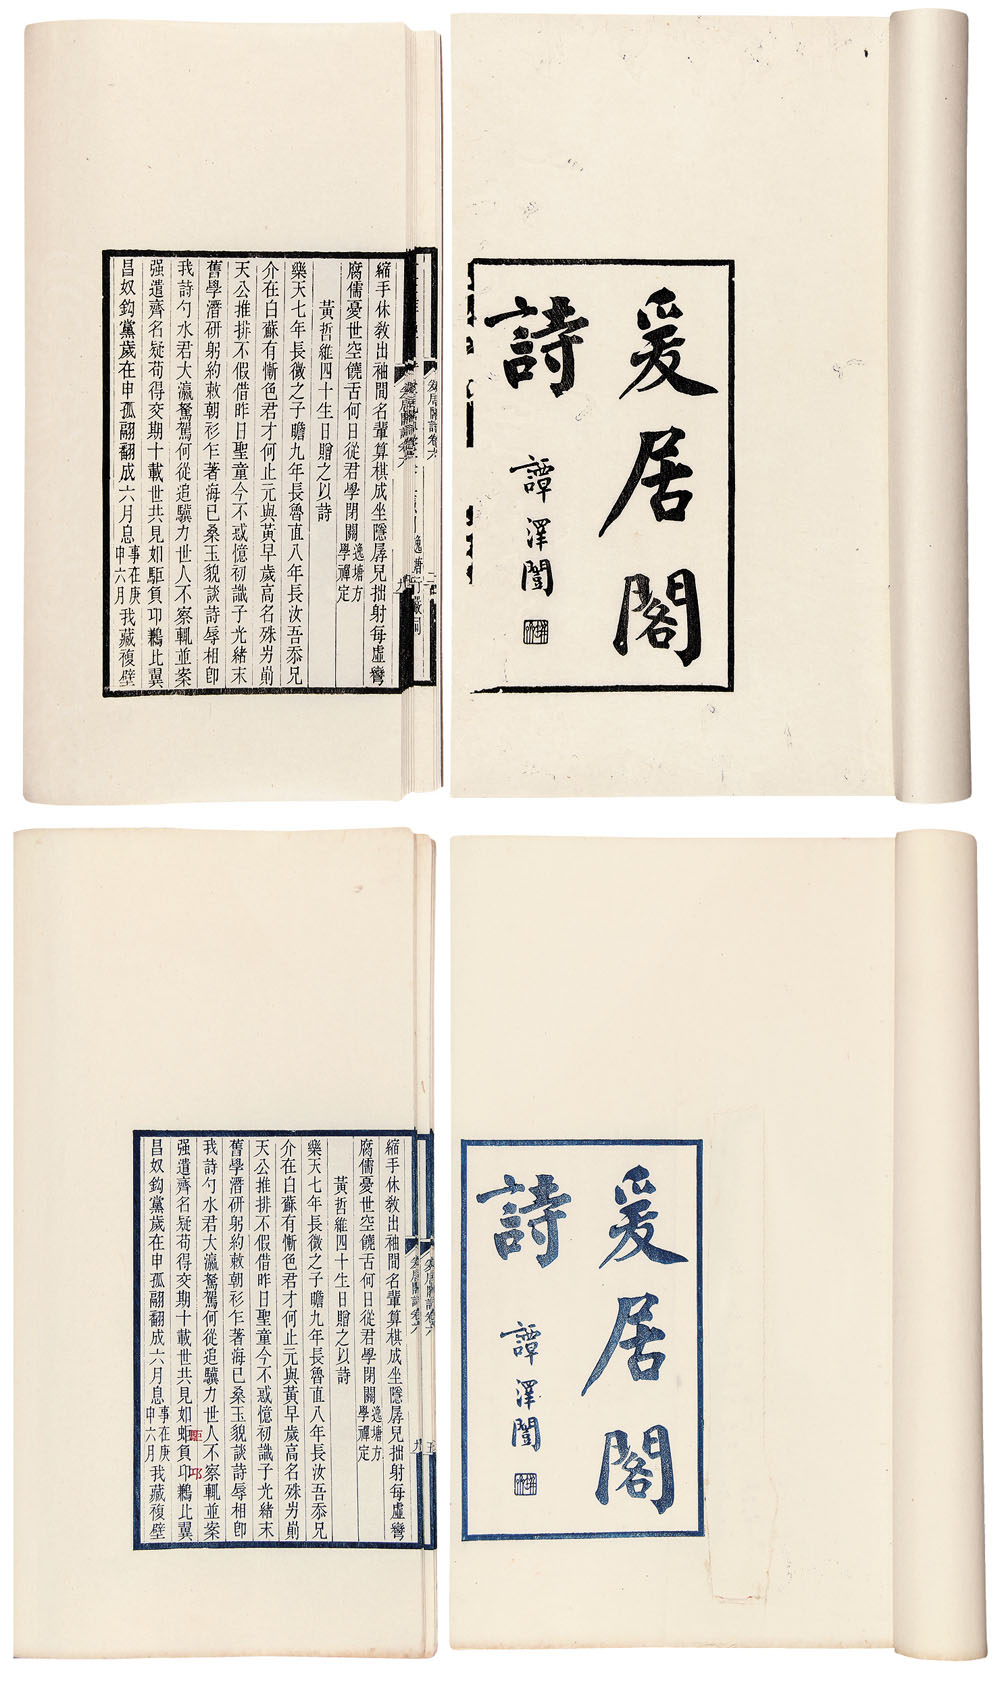 爰居閣
詩
譚澤闓
爰居閣詩卷六
九
縮手休教出袖間名輩算棋成坐隱孱兒拙射每虛彎
腐儒憂世空饒舌何日從君學閉關逸塘方學禪定
黃哲維四十生日贈之以詩
樂天七年長微之子瞻九年長魯直八年長汝吾忝兄
介在白蘇有慚色君才何止元與黃早歲高名殊屴崱
天公推排不假借昨日聖童今不惑憶初識子光緒末
舊學潛研躬約敕朝衫乍著海已桑玉貌談詩辱相卽
我詩勺水君大瀛駑駕何從追驥力世人不察輒並案
强遣齊名疑苟得交期十載世共見如駏負卭鶼比翼
昌奴鈎黨歲在申孤翮翻成六月息事在庚申六月我藏複壁
爰居閣
詩
譚澤闓
爰居閣詩卷六
九
縮手休教出袖間名輩算棋成坐隱孱兒拙射每虛彎
腐儒憂世空饒舌何日從君學閉關逸塘方學禪定
黃哲維四十生日贈之以詩
樂天七年長微之子瞻九年長魯直八年長汝吾忝兄
介在白蘇有慚色君才何止元與黃早歲高名殊屴崱
天公推排不假借昨日聖童今不惑憶初識子光緒末
舊學潛研躬約敕朝衫乍著海已桑玉貌談詩辱相卽
我詩勺水君大瀛駑駕何從追驥力世人不察輒並案
駏 邛
强遣齊名疑苟得交期十載世共見如蚷負卬鶼比翼
昌奴鈎黨歲在申孤翮翻成六月息事在庚申六月我藏複壁